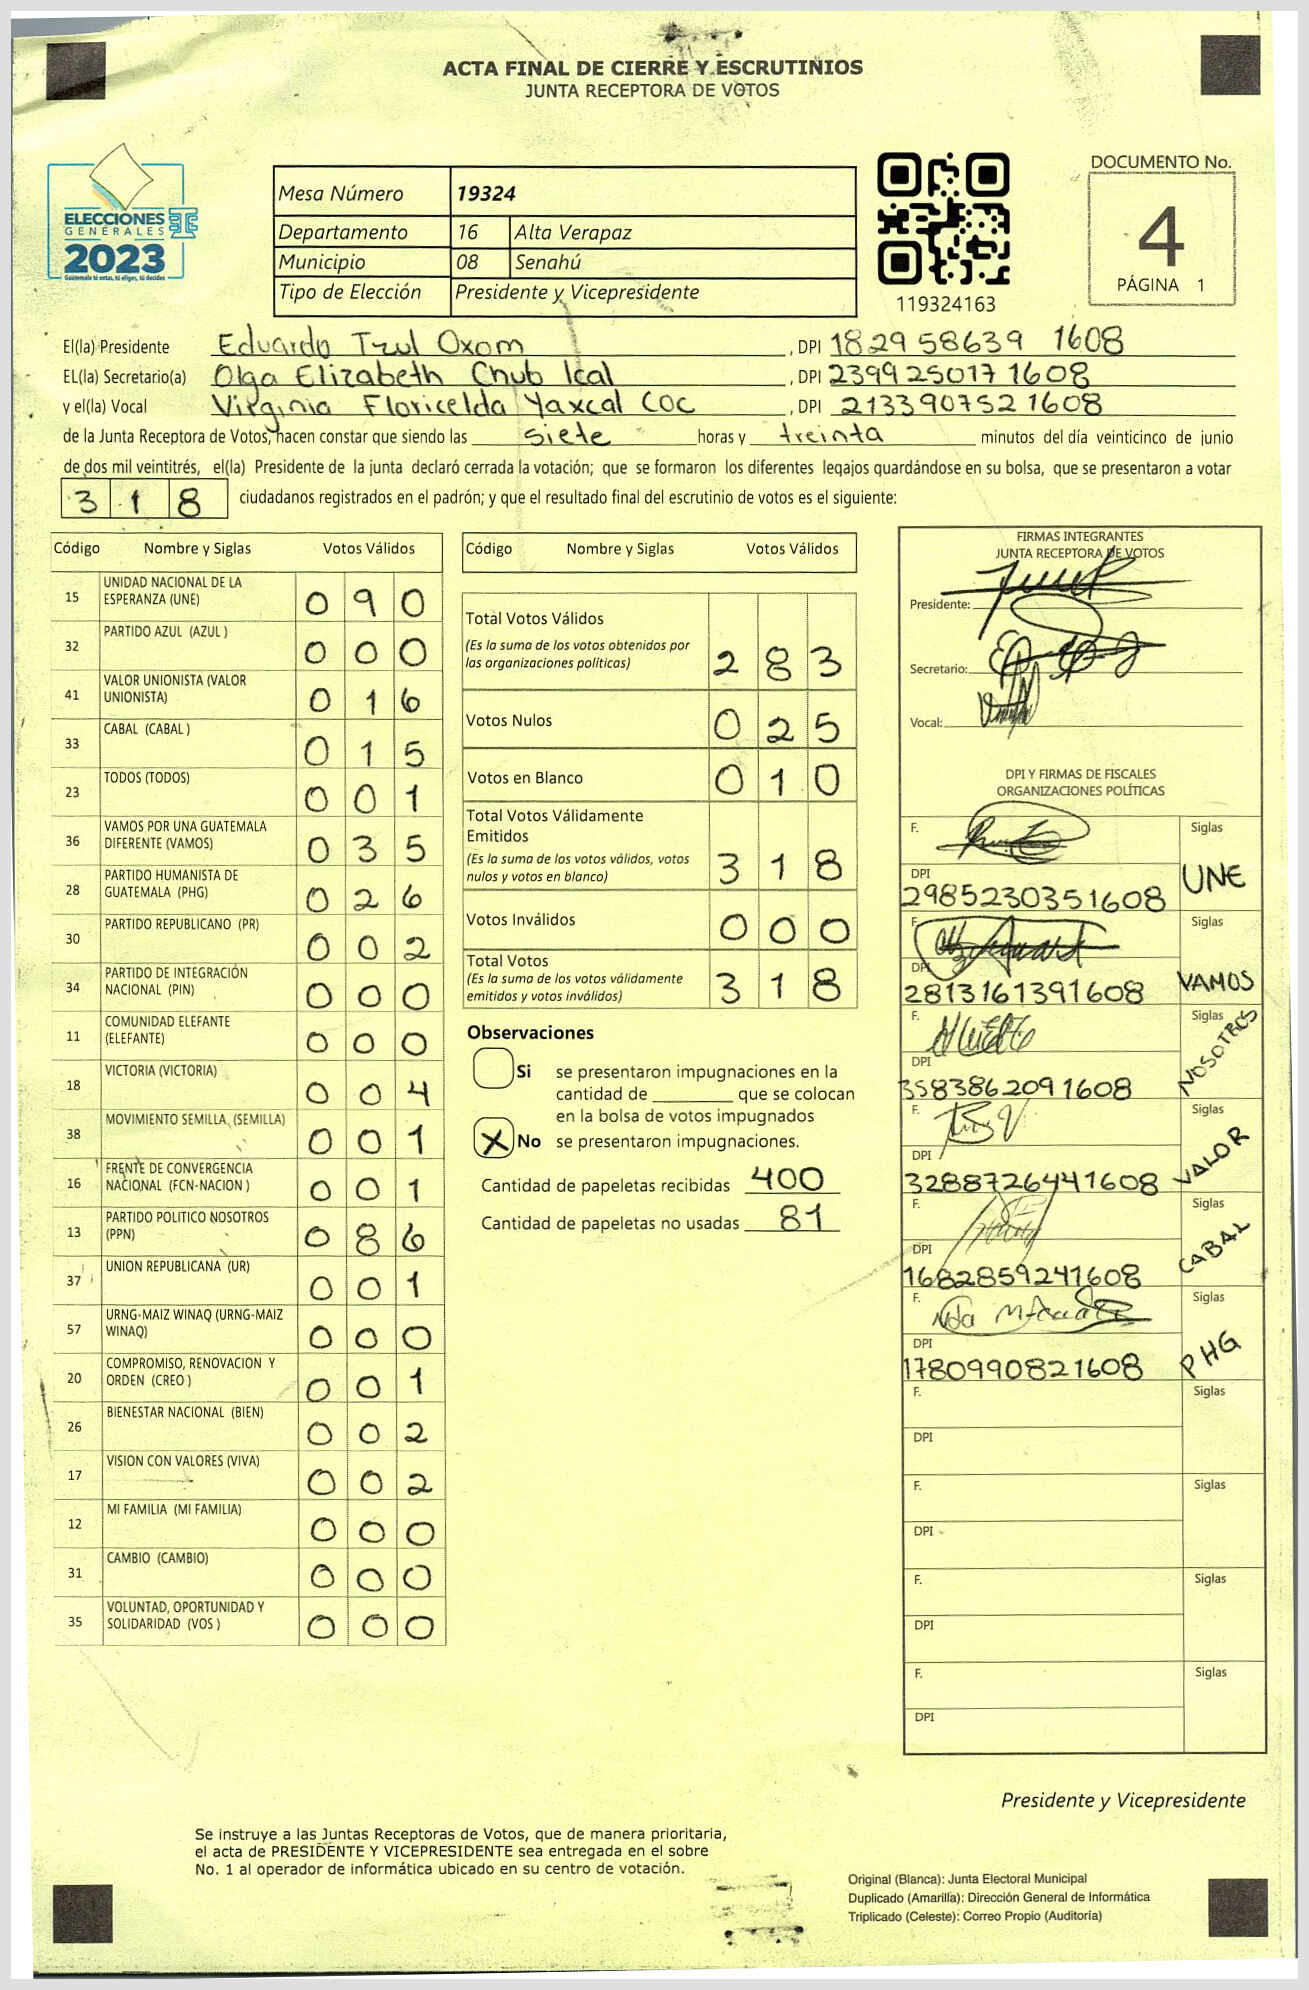 ACTA FINAL DE CIERRE Y ESCRUTINIOS
JUNTA RECEPTORA DE VOTOS
ELECCIONES
GENERALES
2023
Guatemala tú votas, tú eliges, tú decides
Mesa Número 19324
Departamento 16 Alta Verapaz
Municipio 08 Senahú
Tipo de Elección Presidente y Vicepresidente
119324163
DOCUMENTO No.
4
PÁGINA 1
El(la) Presidente Eduardo Tzul Oxom, DPI 1829 58639 1608
EL(la) Secretario(a) Olga Elizabeth Chub Ical, DPI 2399 25017 1608
y el(la) Vocal Virginia Floricelda Yaxcal Coc, DPI 213390752 1608
de la Junta Receptora de Votos, hacen constar que siendo las siete horas y treinta minutos del día veinticinco de junio
de dos mil veintitrés, el(la) Presidente de la junta declaró cerrada la votación; que se formaron los diferentes legajos guardándose en su bolsa, que se presentaron a votar
318 ciudadanos registrados en el padrón; y que el resultado final del escrutinio de votos es el siguiente:
Código Nombre y Siglas Votos Válidos
15 UNIDAD NACIONAL DE LA ESPERANZA (UNE) 090
32 PARTIDO AZUL (AZUL ) 000
41 VALOR UNIONISTA (VALOR UNIONISTA) 016
33 CABAL (CABAL ) 015
23 TODOS (TODOS) 001
36 VAMOS POR UNA GUATEMALA DIFERENTE (VAMOS) 035
28 PARTIDO HUMANISTA DE GUATEMALA (PHG) 026
30 PARTIDO REPUBLICANO (PR) 002
34 PARTIDO DE INTEGRACIÓN NACIONAL (PIN) 000
11 COMUNIDAD ELEFANTE (ELEFANTE) 000
18 VICTORIA (VICTORIA) 004
38 MOVIMIENTO SEMILLA (SEMILLA) 001
16 FRENTE DE CONVERGENCIA NACIONAL (FCN-NACION ) 001
13 PARTIDO POLITICO NOSOTROS (PPN) 086
37 UNION REPUBLICANA (UR) 001
57 URNG-MAIZ WINAQ (URNG-MAIZ WINAQ) 000
20 COMPROMISO, RENOVACION Y ORDEN (CREO ) 001
26 BIENESTAR NACIONAL (BIEN) 002
17 VISION CON VALORES (VIVA) 002
12 MI FAMILIA (MI FAMILIA) 000
31 CAMBIO (CAMBIO) 000
35 VOLUNTAD, OPORTUNIDAD Y SOLIDARIDAD (VOS ) 000
Código Nombre y Siglas Votos Válidos
Total Votos Válidos 283
(Es la suma de los votos obtenidos por
las organizaciones políticas)
Votos Nulos 025
Votos en Blanco 010
Total Votos Válidamente
Emitidos 318
(Es la suma de los votos válidos, votos
nulos y votos en blanco)
Votos Inválidos 000
Total Votos 318
(Es la suma de los votos válidamente
emitidos y votos inválidos)
Observaciones
Si se presentaron impugnaciones en la
cantidad de ________ que se colocan
en la bolsa de votos impugnados
X No se presentaron impugnaciones.
Cantidad de papeletas recibidas 400
Cantidad de papeletas no usadas 81
FIRMAS INTEGRANTES
JUNTA RECEPTORA DE VOTOS
Presidente:
Secretario:
Vocal:
DPI Y FIRMAS DE FISCALES
ORGANIZACIONES POLÍTICAS
F. Siglas
DPI UNE
2985230351608
F. Siglas
DPI VAMOS
2813161391608
F. Siglas
DPI NOSOTROS
3583862091608
F. Siglas
DPI VALOR
3288726441608
F. Siglas
DPI CABAL
1682859241608
F. Siglas
DPI PHG
1780990821608
F. Siglas
DPI
F. Siglas
DPI
F. Siglas
DPI
F. Siglas
DPI
Presidente y Vicepresidente
Se instruye a las Juntas Receptoras de Votos, que de manera prioritaria,
el acta de PRESIDENTE Y VICEPRESIDENTE sea entregada en el sobre
No. 1 al operador de informática ubicado en su centro de votación.
Original (Blanca): Junta Electoral Municipal
Duplicado (Amarilla): Dirección General de Informática
Triplicado (Celeste): Correo Propio (Auditoría)